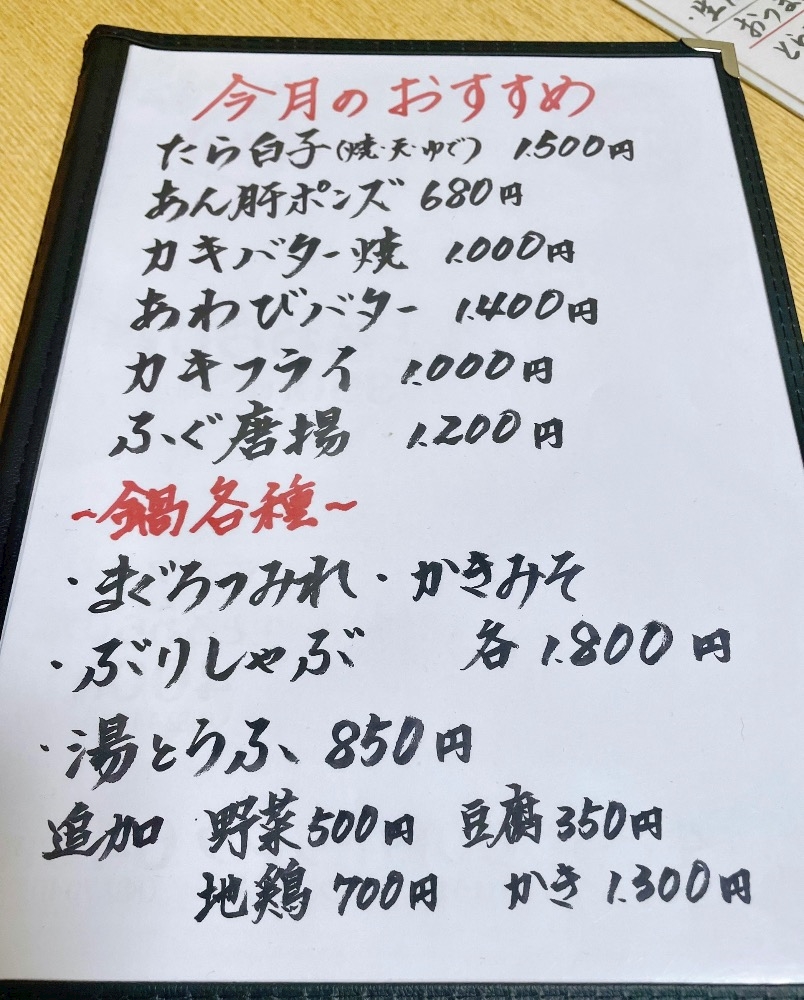 今月のおすすめ
たら白子(焼・天・ゆで) 1.500円
あん肝ポンズ 680円
カキバター焼 1.000円
あわびバター 1.400円
カキフライ 1.000円
ふぐ唐揚 1.200円
~鍋各種~
・まぐろつみれ・かきみそ
・ぶりしゃぶ 各1.800円
・湯とうふ 850円
追加 野菜500円 豆腐350円
地鶏 700円 かき 1.300円
おつま